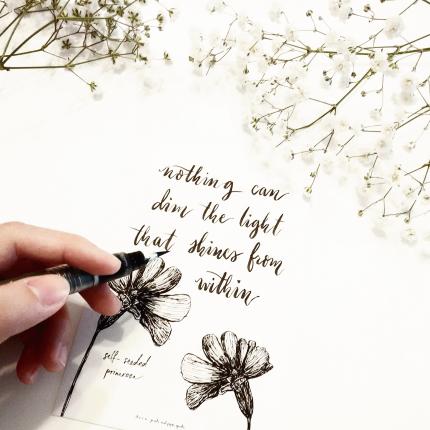 nothing can
dim the light
that shines from
within
self-seeded
primrose